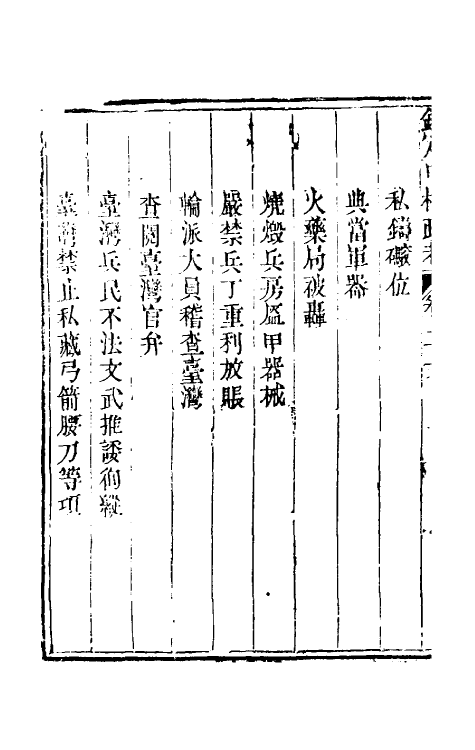 私鑄礮位
典當軍器
火藥局被轟
燒燬兵房盔甲器械
嚴禁兵丁重利放賬
輪派大員稽查臺灣
查閱臺灣官弁
臺灣兵民不法文武推諉徇縱
臺灣禁止私藏弓箭腰刀等項